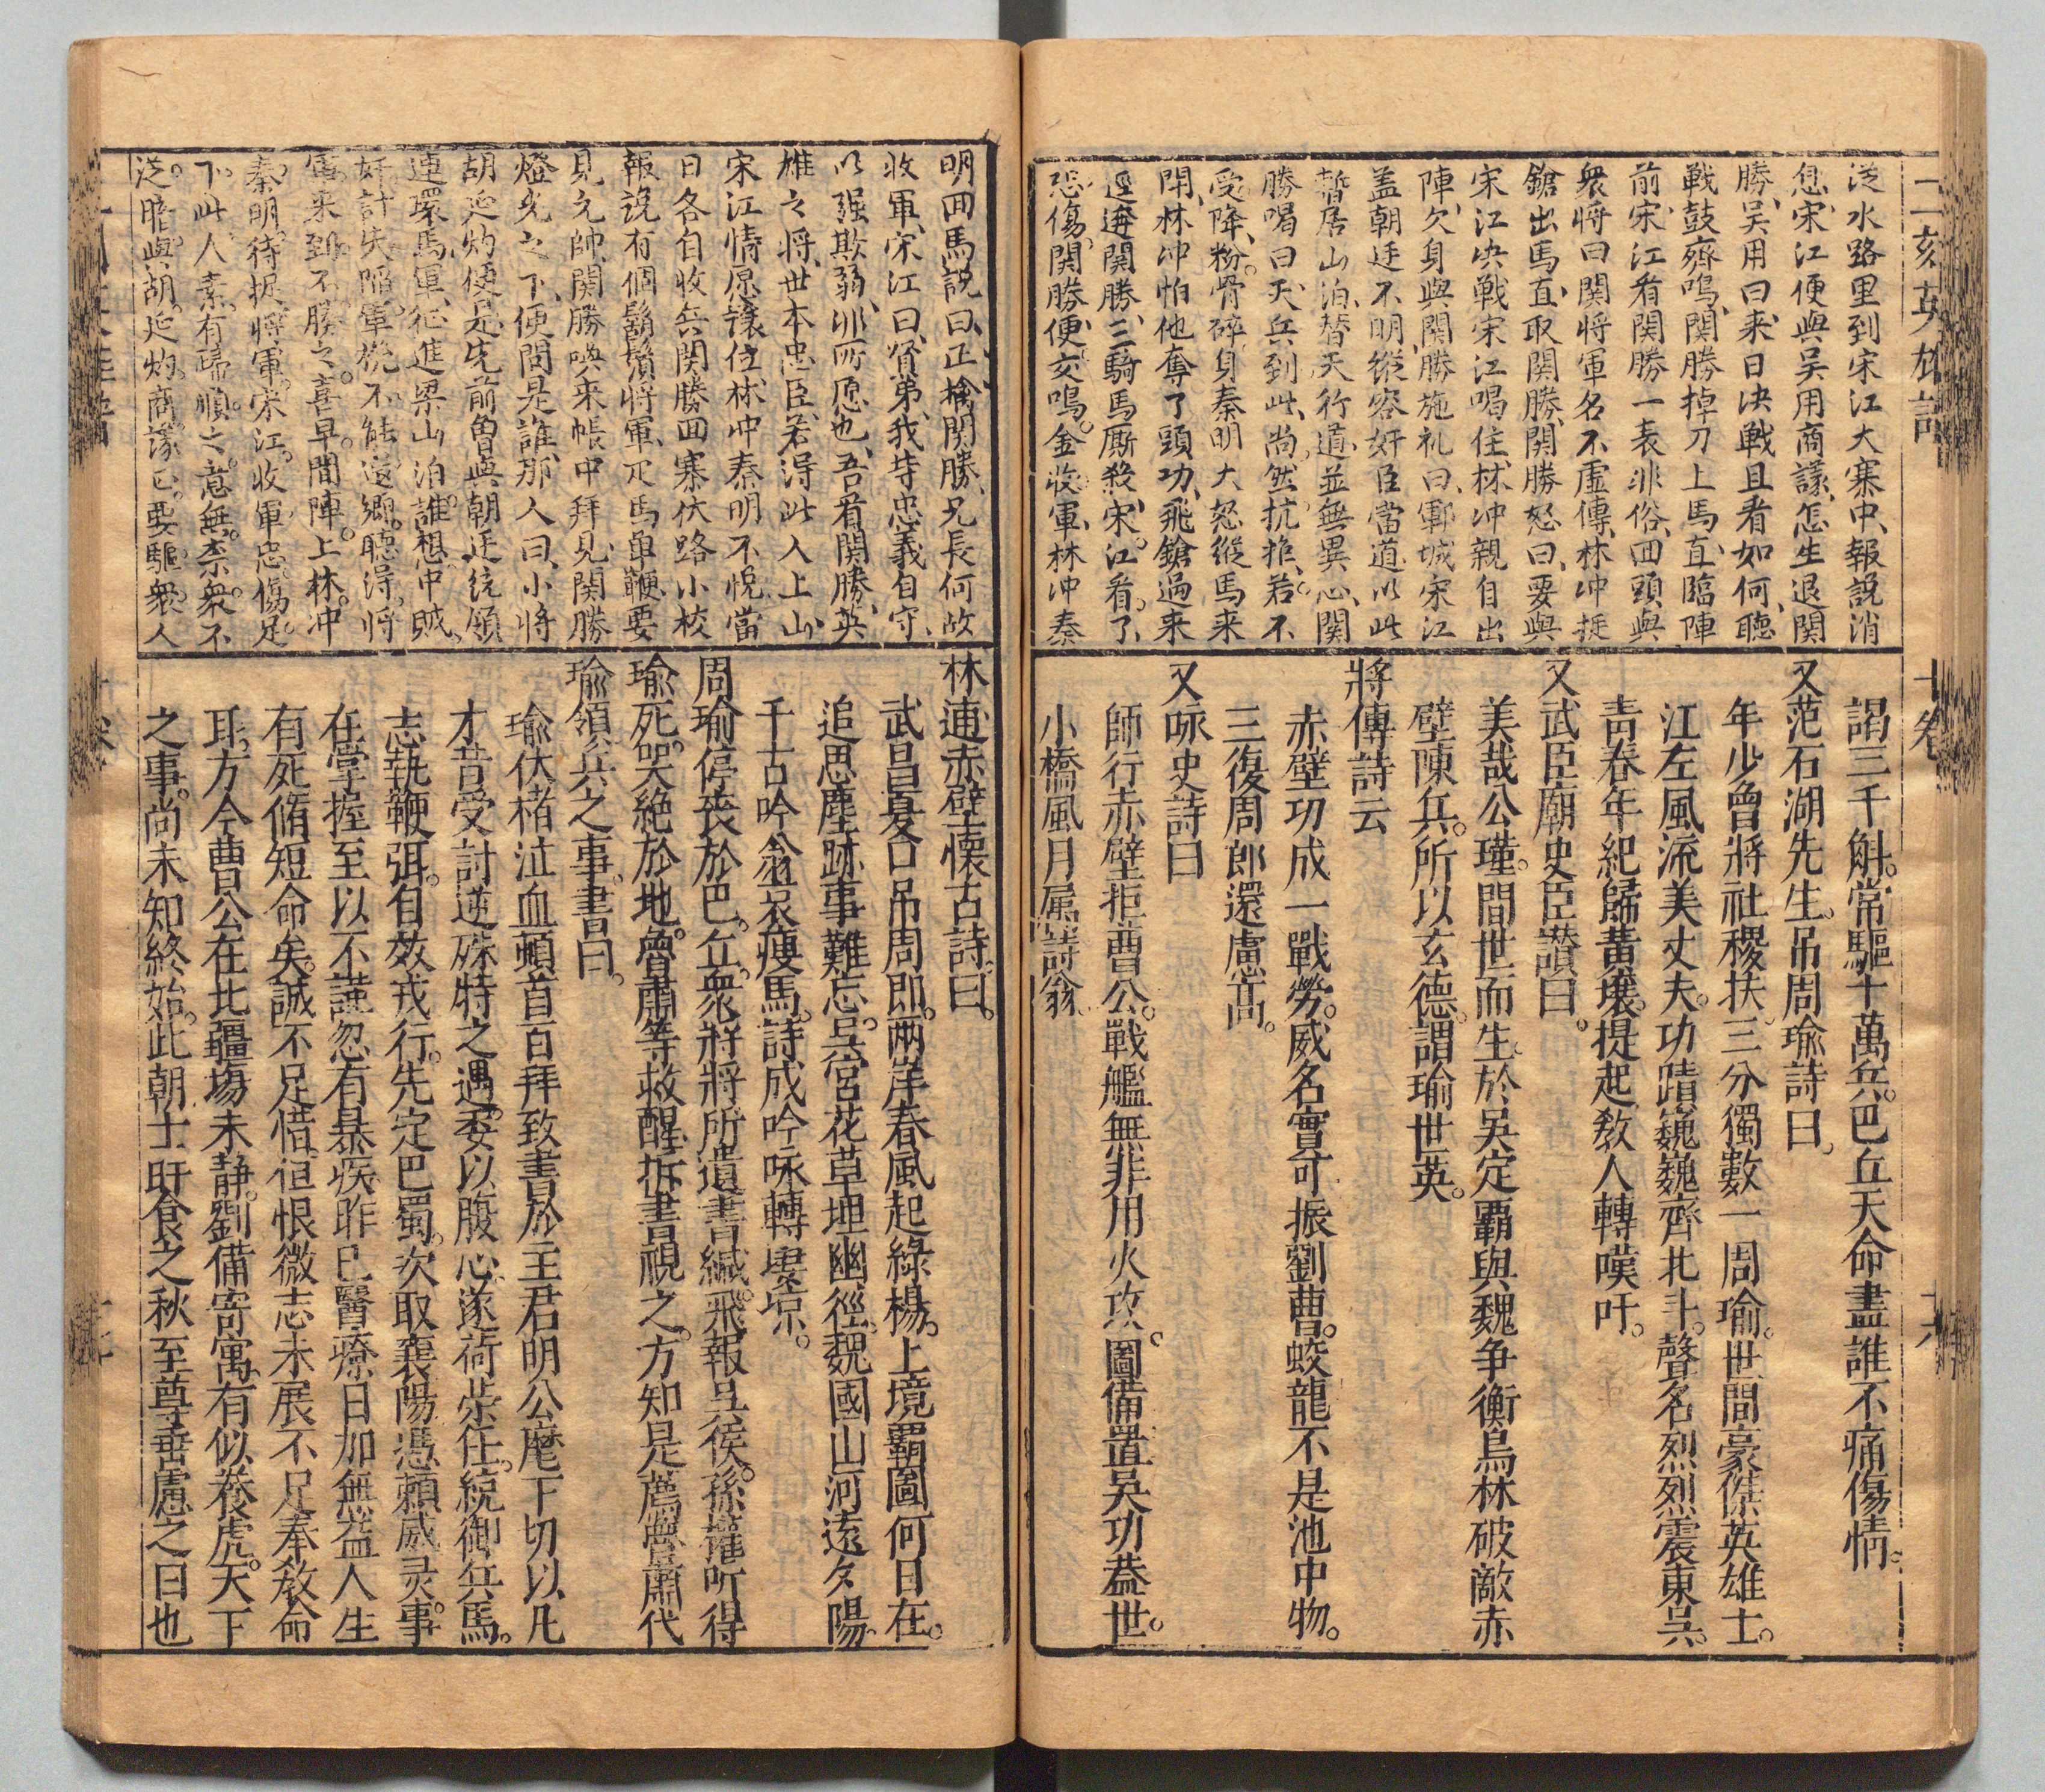 二刻英雄譜
十卷
泛水路里到宋江大寨中、報說消
息、宋江便與吳用商議、怎生退関
勝、吳用曰、来日決戰且看如何、聽
戰鼓齊鳴、関勝掉刀上馬、直臨陣
前、宋江看関勝一表非俗、囬頭與
衆將曰関將軍名不虛傳、林冲挺
鎗出馬、直取関勝、関勝怒曰、要與
宋江決戰宋江喝住、林冲親自出
陣、欠身與関勝施礼曰、鄆城宋江
盖朝廷不明、縱容奸臣當道、以此
暫居山泊、替天行道、並無異心、関
勝喝曰、天兵到此、尚然抗拒、若不
受降、粉骨碎身秦明大怒縱馬来
閗、林冲怕他奪了頭功、飛鎗過来
逕迸関勝、三騎馬厮殺、宋江看了、
恐傷関勝、便交鳴金收軍、林冲秦
謁三千斛。常驅十萬兵。巴丘天命盡誰不痛傷情。
又范石湖先生。吊周瑜詩曰。
年少曾將社稷扶。三分獨數一周瑜。世間豪傑英雄士。
江左風流美丈夫。功蹟巍巍齊北斗。聲名烈烈震東吳。
青春年紀歸黃壤。提起教人轉嘆吁。
又武臣廟史臣讃曰。
美哉公瑾。間世而生。於吳定覇與魏争衡烏林破敵赤
壁陳兵。所以玄德。謂瑜世英。
將傳詩云
赤壁功成一戰勞。威名實可振劉曹。蛟龍不是池中物。
三復周郎還慮高。
又咏史詩曰
師行赤壁拒曹公。戰艦無非用火攻。圖備置吳功葢世。
小橋風月属詩翁
明囬馬說曰、正擒関勝、兄長何故
收軍、宋江曰、賢弟、我等忠義自守、
以强欺弱、非所愿也、吾看関勝、英
雄之將、世本忠臣、若得此人上山、
宋江情原讓位、林冲秦明不悅、當
日各自收兵関勝囬寨伏路小校
報說有個鬍鬚將軍、疋馬单鞭、要
見元帥、関勝喚来帳中拜見、関勝
燈光之下、便問是誰、那人曰、小將
胡延灼便是、先前曾與朝廷統領
連環馬軍、征進梁山泊、誰想中賊
奸計失陷軍旅、不能还鄉、聽得將
軍来到、不勝之喜、早間陣上林冲
秦明待捉將軍、宋江收軍恐傷足
下、此人素有歸順之意、無柰衆不
從、暗與胡延灼商議、正要驅衆人
林逋赤壁懷古詩曰。
武昌夏口吊周郎。兩岸春風起綠楊。上境覇圖何日在。
追思塵跡事難忘。吳宮花草埋幽徑。魏國山河遠夕陽。
千古吟翁哀瘦馬。詩成吟咏轉淒凉。
周瑜停喪於巴丘。衆將將所遺書緘。飛報吳侯。孫權听得
瑜死。哭絶於地。魯肅等救醒。拆書視之。方知是薦魯肅代
瑜領兵之事。書曰。
瑜伏楮泣血頓首百拜致書於主君明公麾下切以凡
才昔受討逆殊特之遇。委以腹心。遂荷荣任。統御兵馬。
志執鞭弭。自效戎行。先定巴蜀。次取襄陽。憑頼威灵。事
在掌握。至以不謹。忽有暴疾。昨已醫療。日加無益人生
有死。脩短命矣。誠不足惜。但恨微志未展不足奉教命
耳。方今曹公在北。疆場未静。劉備寄寓。有似養虎。天下
之事。尚未知終始。此朝士旰食之秋。至尊垂慮之日也